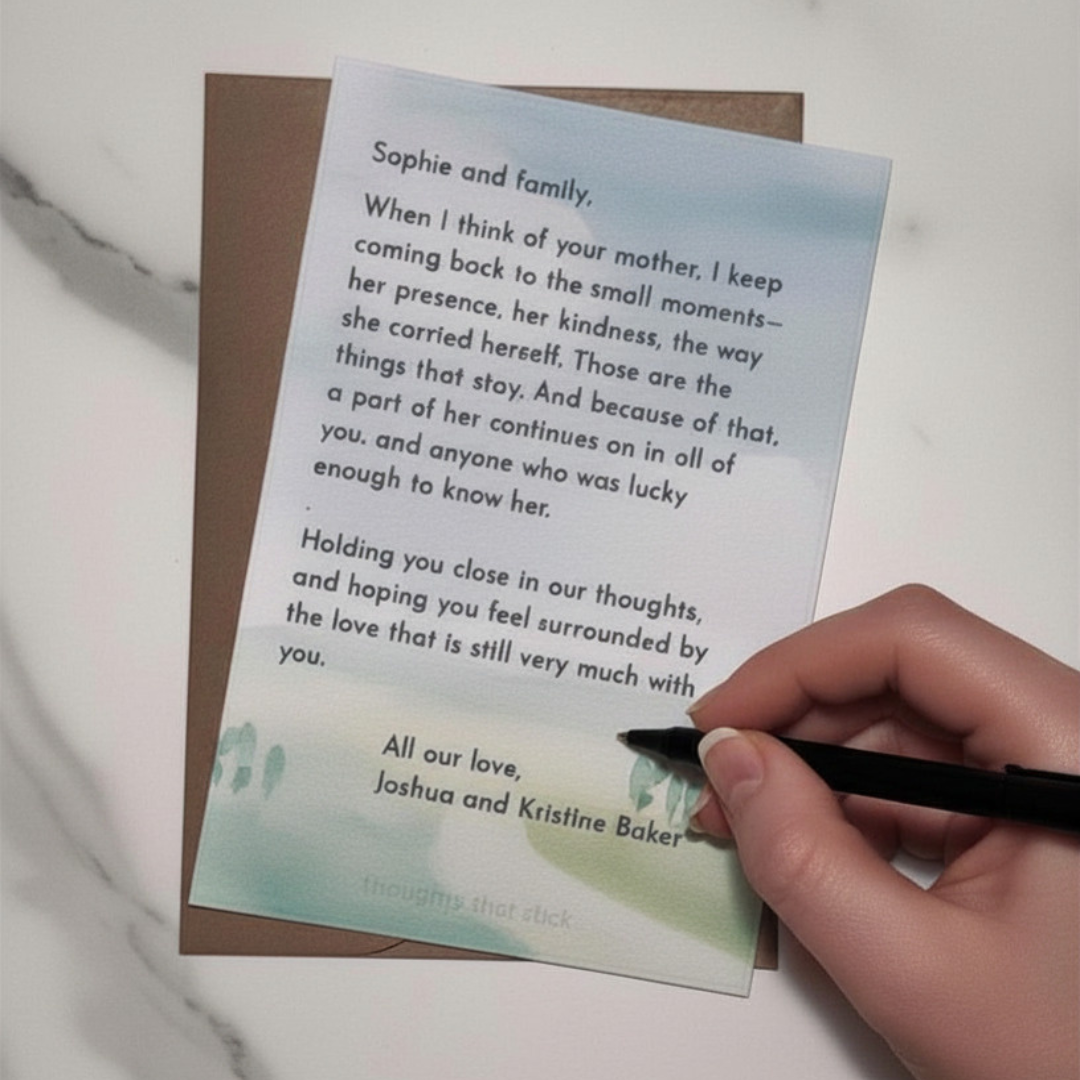 Sophie and family,
When I think of your mother, I keep
coming bock to the small moments—
her presence, her kindness, the way
she corried herself. Those are the
things that stoy. And because of that,
a part of her continues on in oll of
you. and anyone who was lucky
enough to know her.
.
Holding you close in our thoughts,
and hoping you feel surrounded by
the love that is still very much with
you.
All our love,
Joshua and Kristine Baker
thoughts that stick